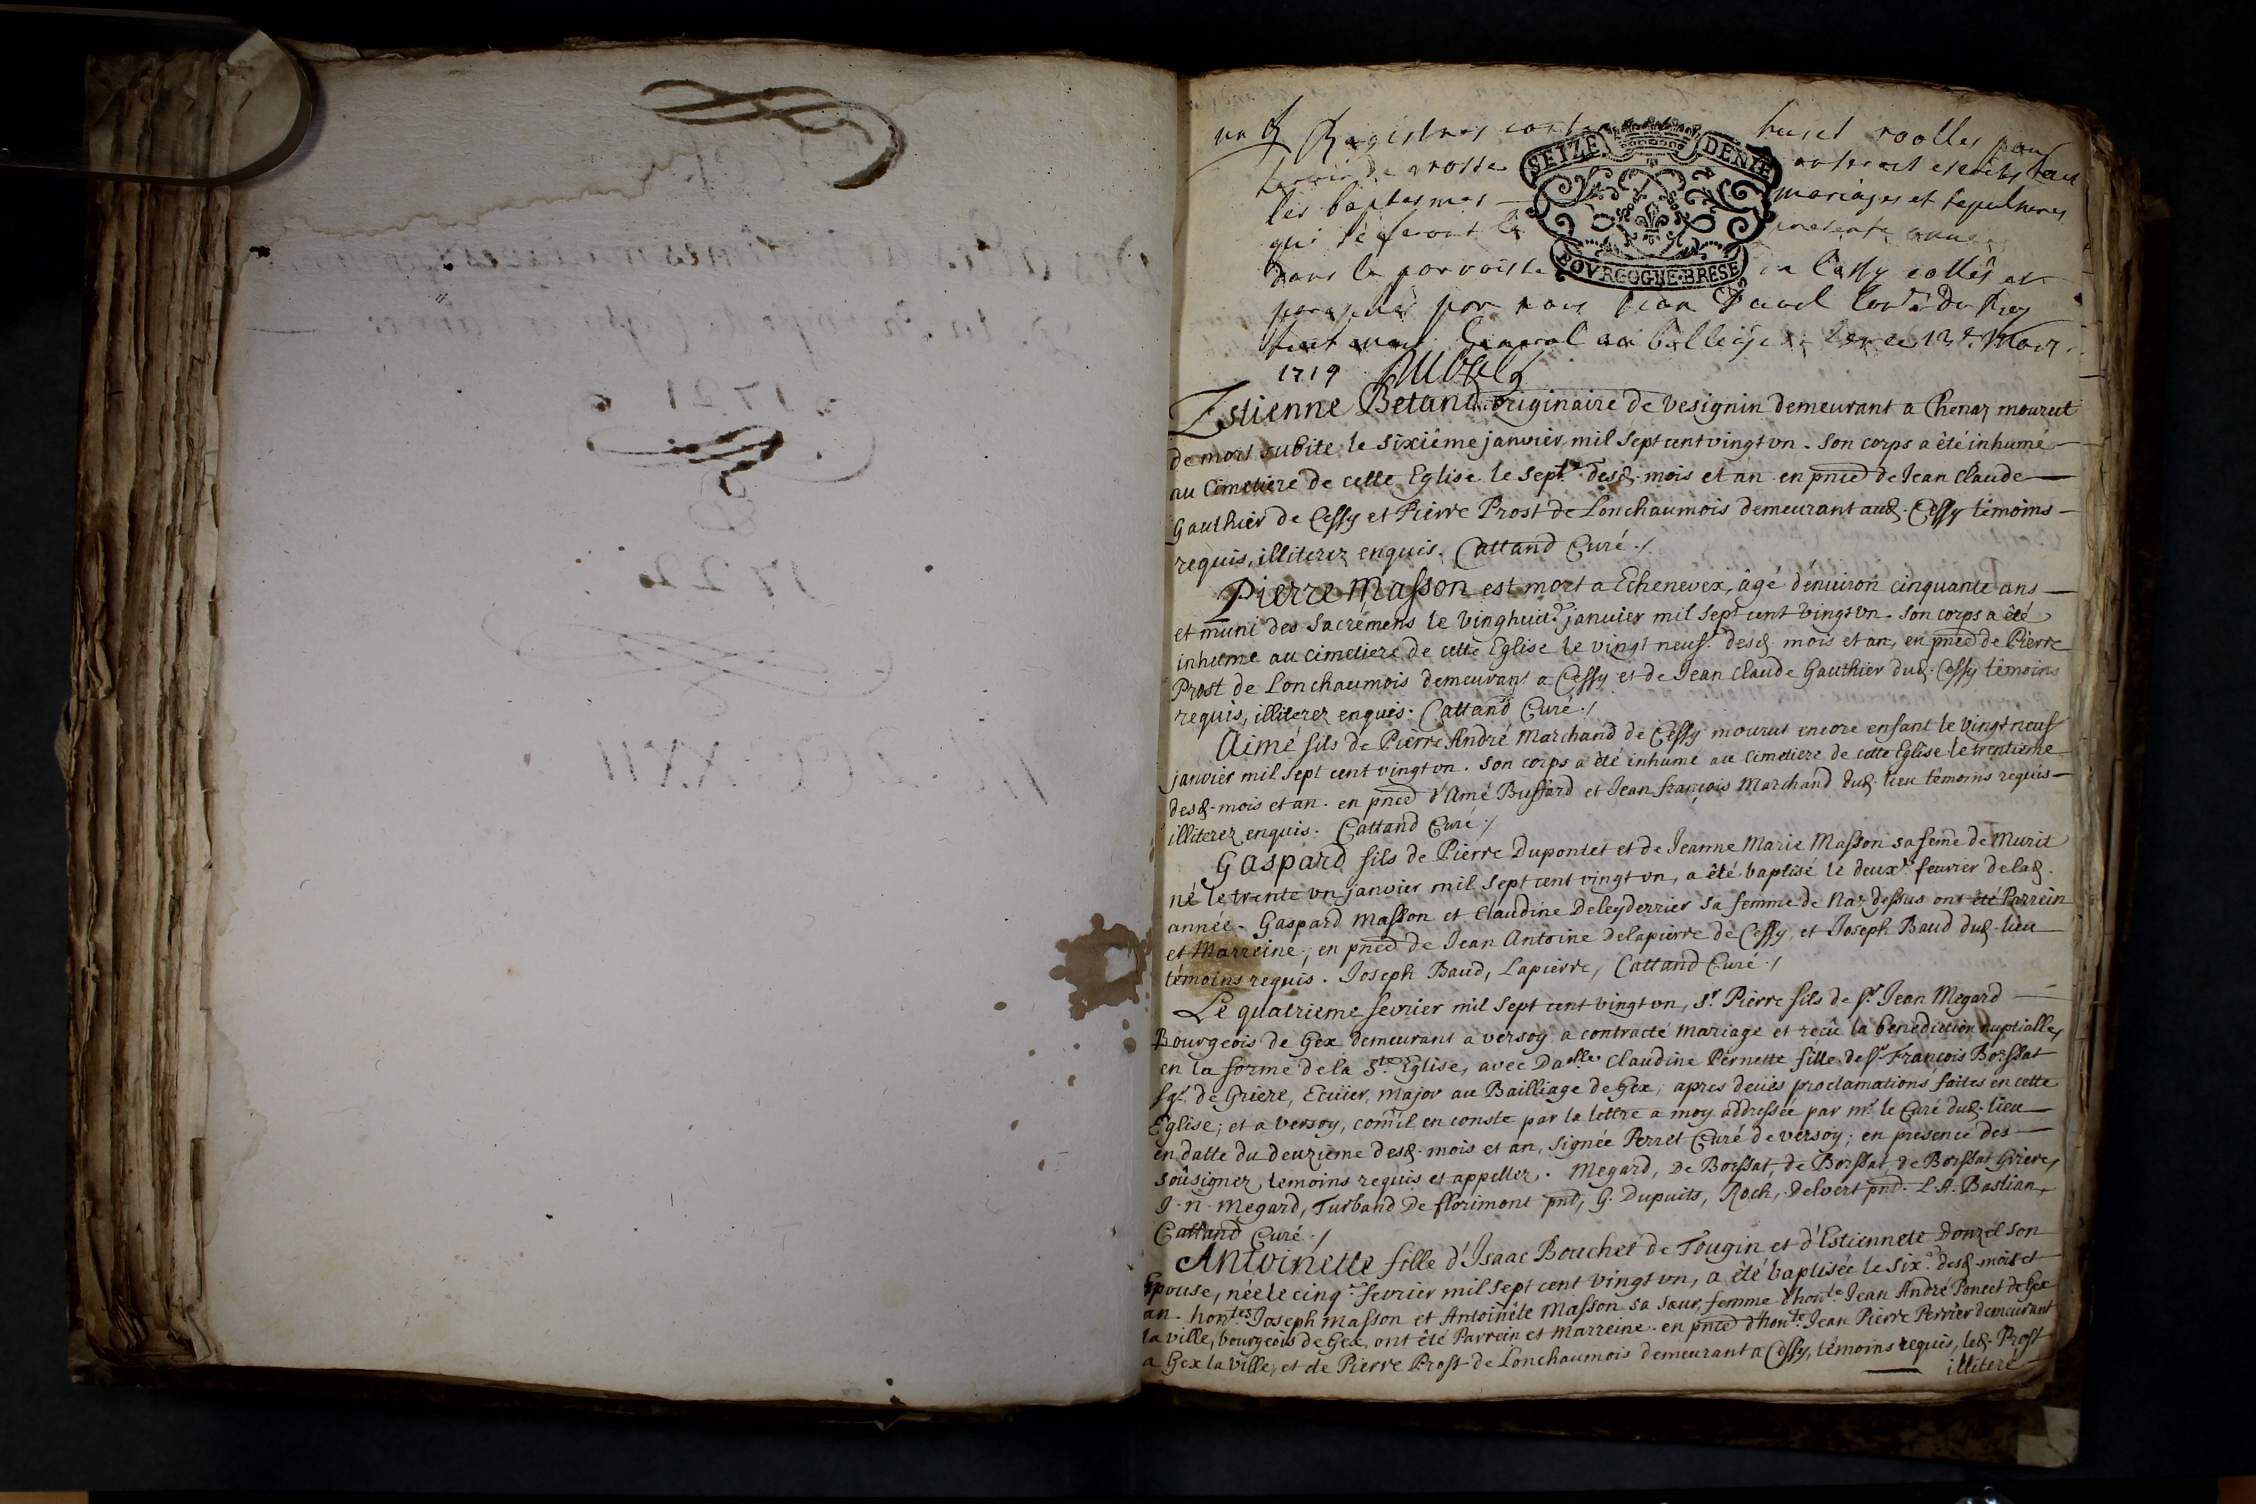 1721
&
1722
Registres huict roolles pour
servir de grosse
les baptesmes mariages et sepultures
qui se feront la presente année
dans la parroisse de Cessy cottés et
par nous Jean Duval Cons.r Du Roy
General au balliage de Gex ce 12e. Mars
1719 Duval
SEIZE DENIE
BOVRGOGNE BRESE
Estienne Betand originaire de Vesignin demeurant a Chenaz mourut
de mort subite le sixiéme janvier mil sept cent vingt vn. son corps a été inhumé
au Cimetiere de cette Eglise le sept.e desd. mois et an en pnce de Jean Claude
Gauthier de Cessy et Pierre Prost de Lonchaumois demeurant aud. Cessy témoins
requis, illiterez enquis. Cattand Curé ./
Pierre Masson est mort a Echenevex, âgé d'enuiron cinquante ans
et muni des Sacrémens le vinghuit.e janvier mil sept cent vingt vn. son corps a été
inhumé au cimetiere de cette Eglise le vingt neuf.e desd. mois et an, en pnce de Pierre
Prost de Lonchaumois demeurant a Cessy et de Jean Claude Gauthier dud. Cessy témoins
requis, illiterez enquis. Cattand Curé ./
Aimé fils de Pierre André Marchand de Cessy mourut encore enfant le vingt neuf
janvier mil sept cent vingt vn. son corps a été inhumé au cimetiere de cette Eglise le trentieme
desd. mois et an. en pnce d'Amé Bussard et Jean françois Marchand dud. lieu témoins requis
illiterez enquis. Cattand Curé ./
Gaspard fils de Pierre Dupontet et de Jeanne Marie Masson sa feme de Murit
né le trente vn janvier mil sept cent vingt vn, a été baptisé le deux.e feurier de lad.
année. Gaspard Masson et Claudine Deleyderrier sa femme de Naz dessus ont été Parrein
et Marreine, en pnce de Jean Antoine Delapierre de Cessy et Joseph Baud dud. lieu
témoins requis. Joseph Baud, Lapierre, Cattand Curé ./
Le quatrieme fevrier mil sept cent vingt vn, Sr. Pierre fils de Sr. Jean Megard
Bourgeois de Gex demeurant a versoy a contracté mariage et recû la benediction nuptialle,
en la forme de la Ste. Eglise, avec Dalle. Claudine Pernette fille de Sr. François Borssat
Sgr. de Griere, Ecuier, major au Bailliage de Gex, apres deües proclamations faites en cette
Eglise; et a versoy, com̃'il en conste par la lettre a moy addressée par mr. le Curé dud. lieu
en datte du deuzieme desd. mois et an, signée Perret Curé de versoy; en presence des
soûsignez, temoins requis et appellez. Megard, De Borssat, de Borssat, de Borssat Griere,
J. n. Megard, Turband De florimont pnt, G. Dupuits, Roch, Delvert pnt. L. A. Bastian,
Cattand Curé ./
Antoinette fille d'Isaac Bouchet de Tougin et d'Estiennete Donzel son
Epouse, née le cinq.e fevrier mil sept cent vingt vn, a été baptisée le six.e desd. mois et
an. hontes. Joseph Masson et Antoinete Masson sa sœur, femme d'honte. Jean André Poncet de Gex
la ville, bourgeois de Gex, ont été Parrein et Marreine. en pnce d'honte. Jean Pierre Perrier demeurant
a Gex la ville, et de Pierre Prost de Lonchaumois demeurant a Cessy, témoins requis, led. Prost
illiteré